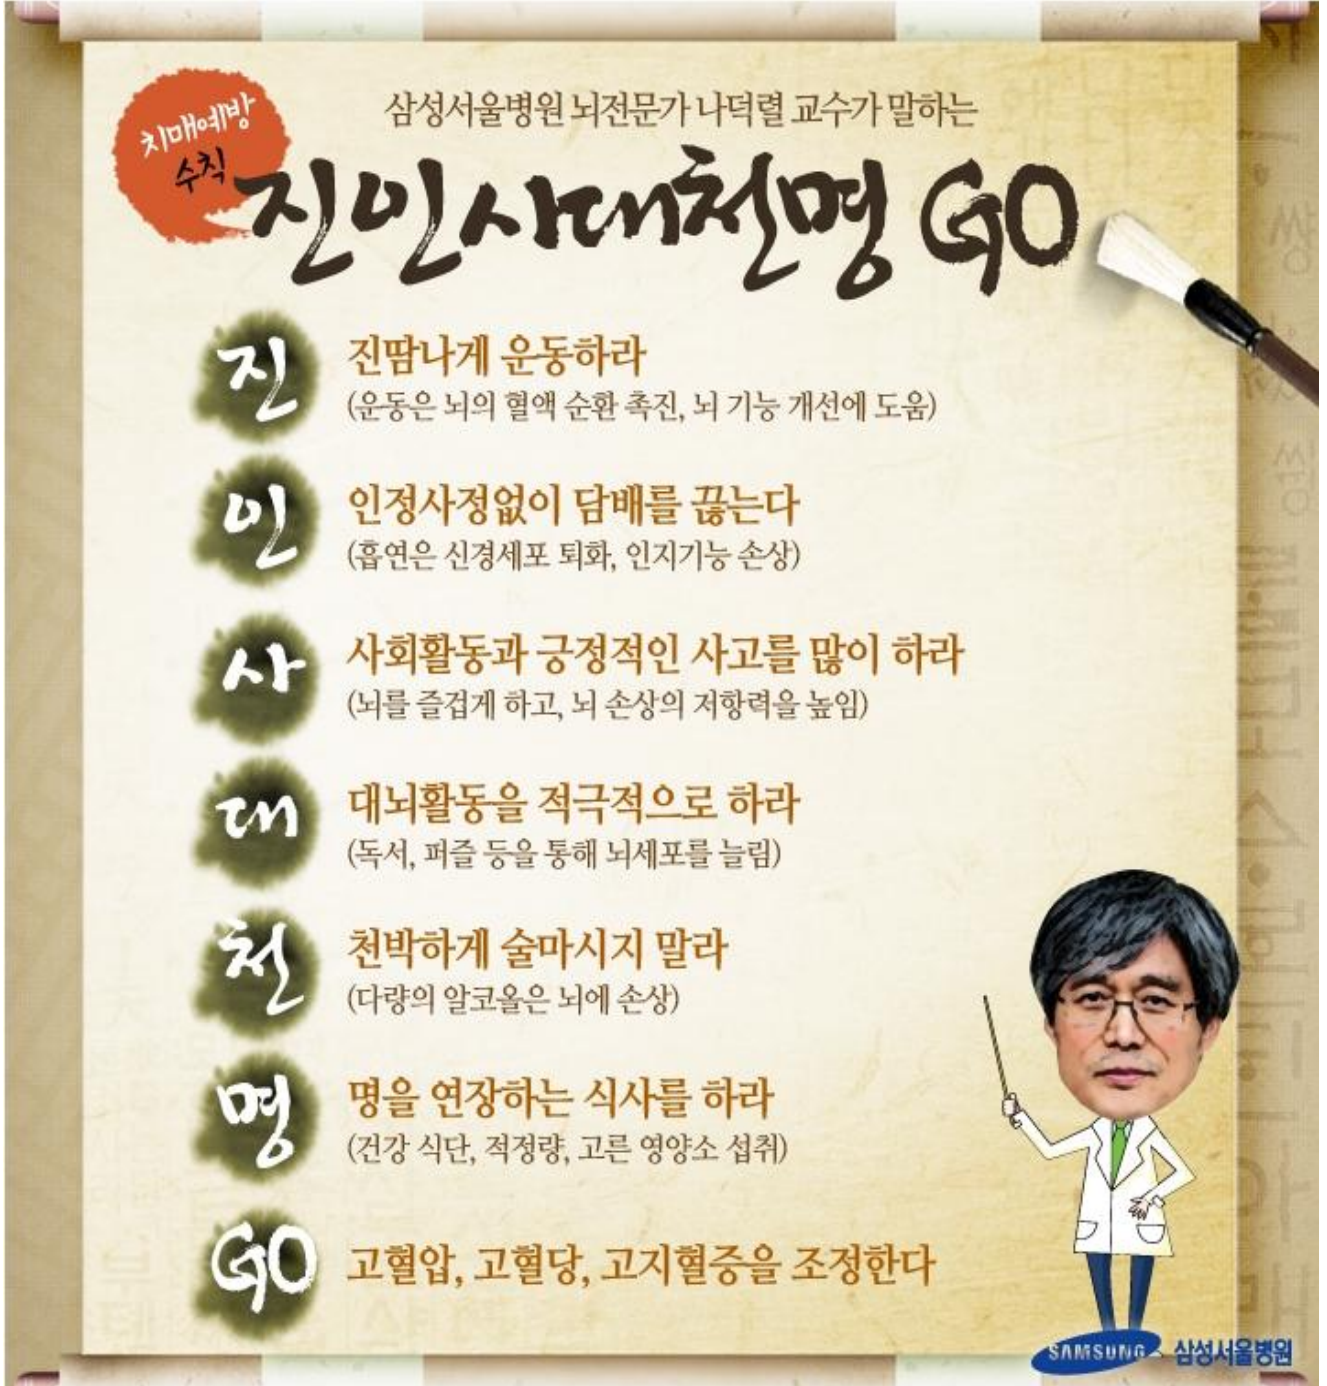 치매예방
수칙
삼성서울병원 뇌전문가 나덕렬 교수가 말하는
진인사대천명 GO
진
진땀나게 운동하라
(운동은 뇌의 혈액 순환 촉진, 뇌 기능 개선에 도움)
인
인정사정없이 담배를 끊는다
(흡연은 신경세포 퇴화, 인지기능 손상)
사
사회활동과 긍정적인 사고를 많이 하라
(뇌를 즐겁게 하고, 뇌 손상의 저항력을 높임)
대
대뇌활동을 적극적으로 하라
(독서, 퍼즐 등을 통해 뇌세포를 늘림)
천
천박하게 술마시지 말라
(다량의 알코올은 뇌에 손상)
명
명을 연장하는 식사를 하라
(건강 식단, 적정량, 고른 영양소 섭취)
GO
고혈압, 고혈당, 고지혈증을 조정한다
SAMSUNG 삼성서울병원